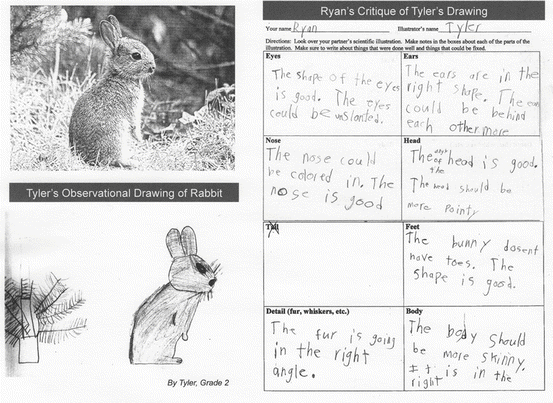 Ryan's Critique of Tyler's Drawing
Your name Ryan Illustrator's name Tyler
Directions: Look over your partner's scientific illustration. Make notes in the boxes about each of the parts of the
illustration. Make sure to write about things that were done well and things that could be fixed.
Eyes
The shape of the eyes
is good. The eyes
could be
Ears
The ears are in the
right shape. The ears
could be behind
each other more
Nose
The nose could
be colored in. The
nose is good
Head
The of the head is good.
The head should be
more pointy
Tail
Feet
The bunny dosent
have toes. The
shape is good.
Detail (fur, whiskers, etc.)
The fur is going
in the right
angle.
Body
The body should
be more skinny.
It is in the
right
Tyler's Observational Drawing of Rabbit
By Tyler, Grade 2